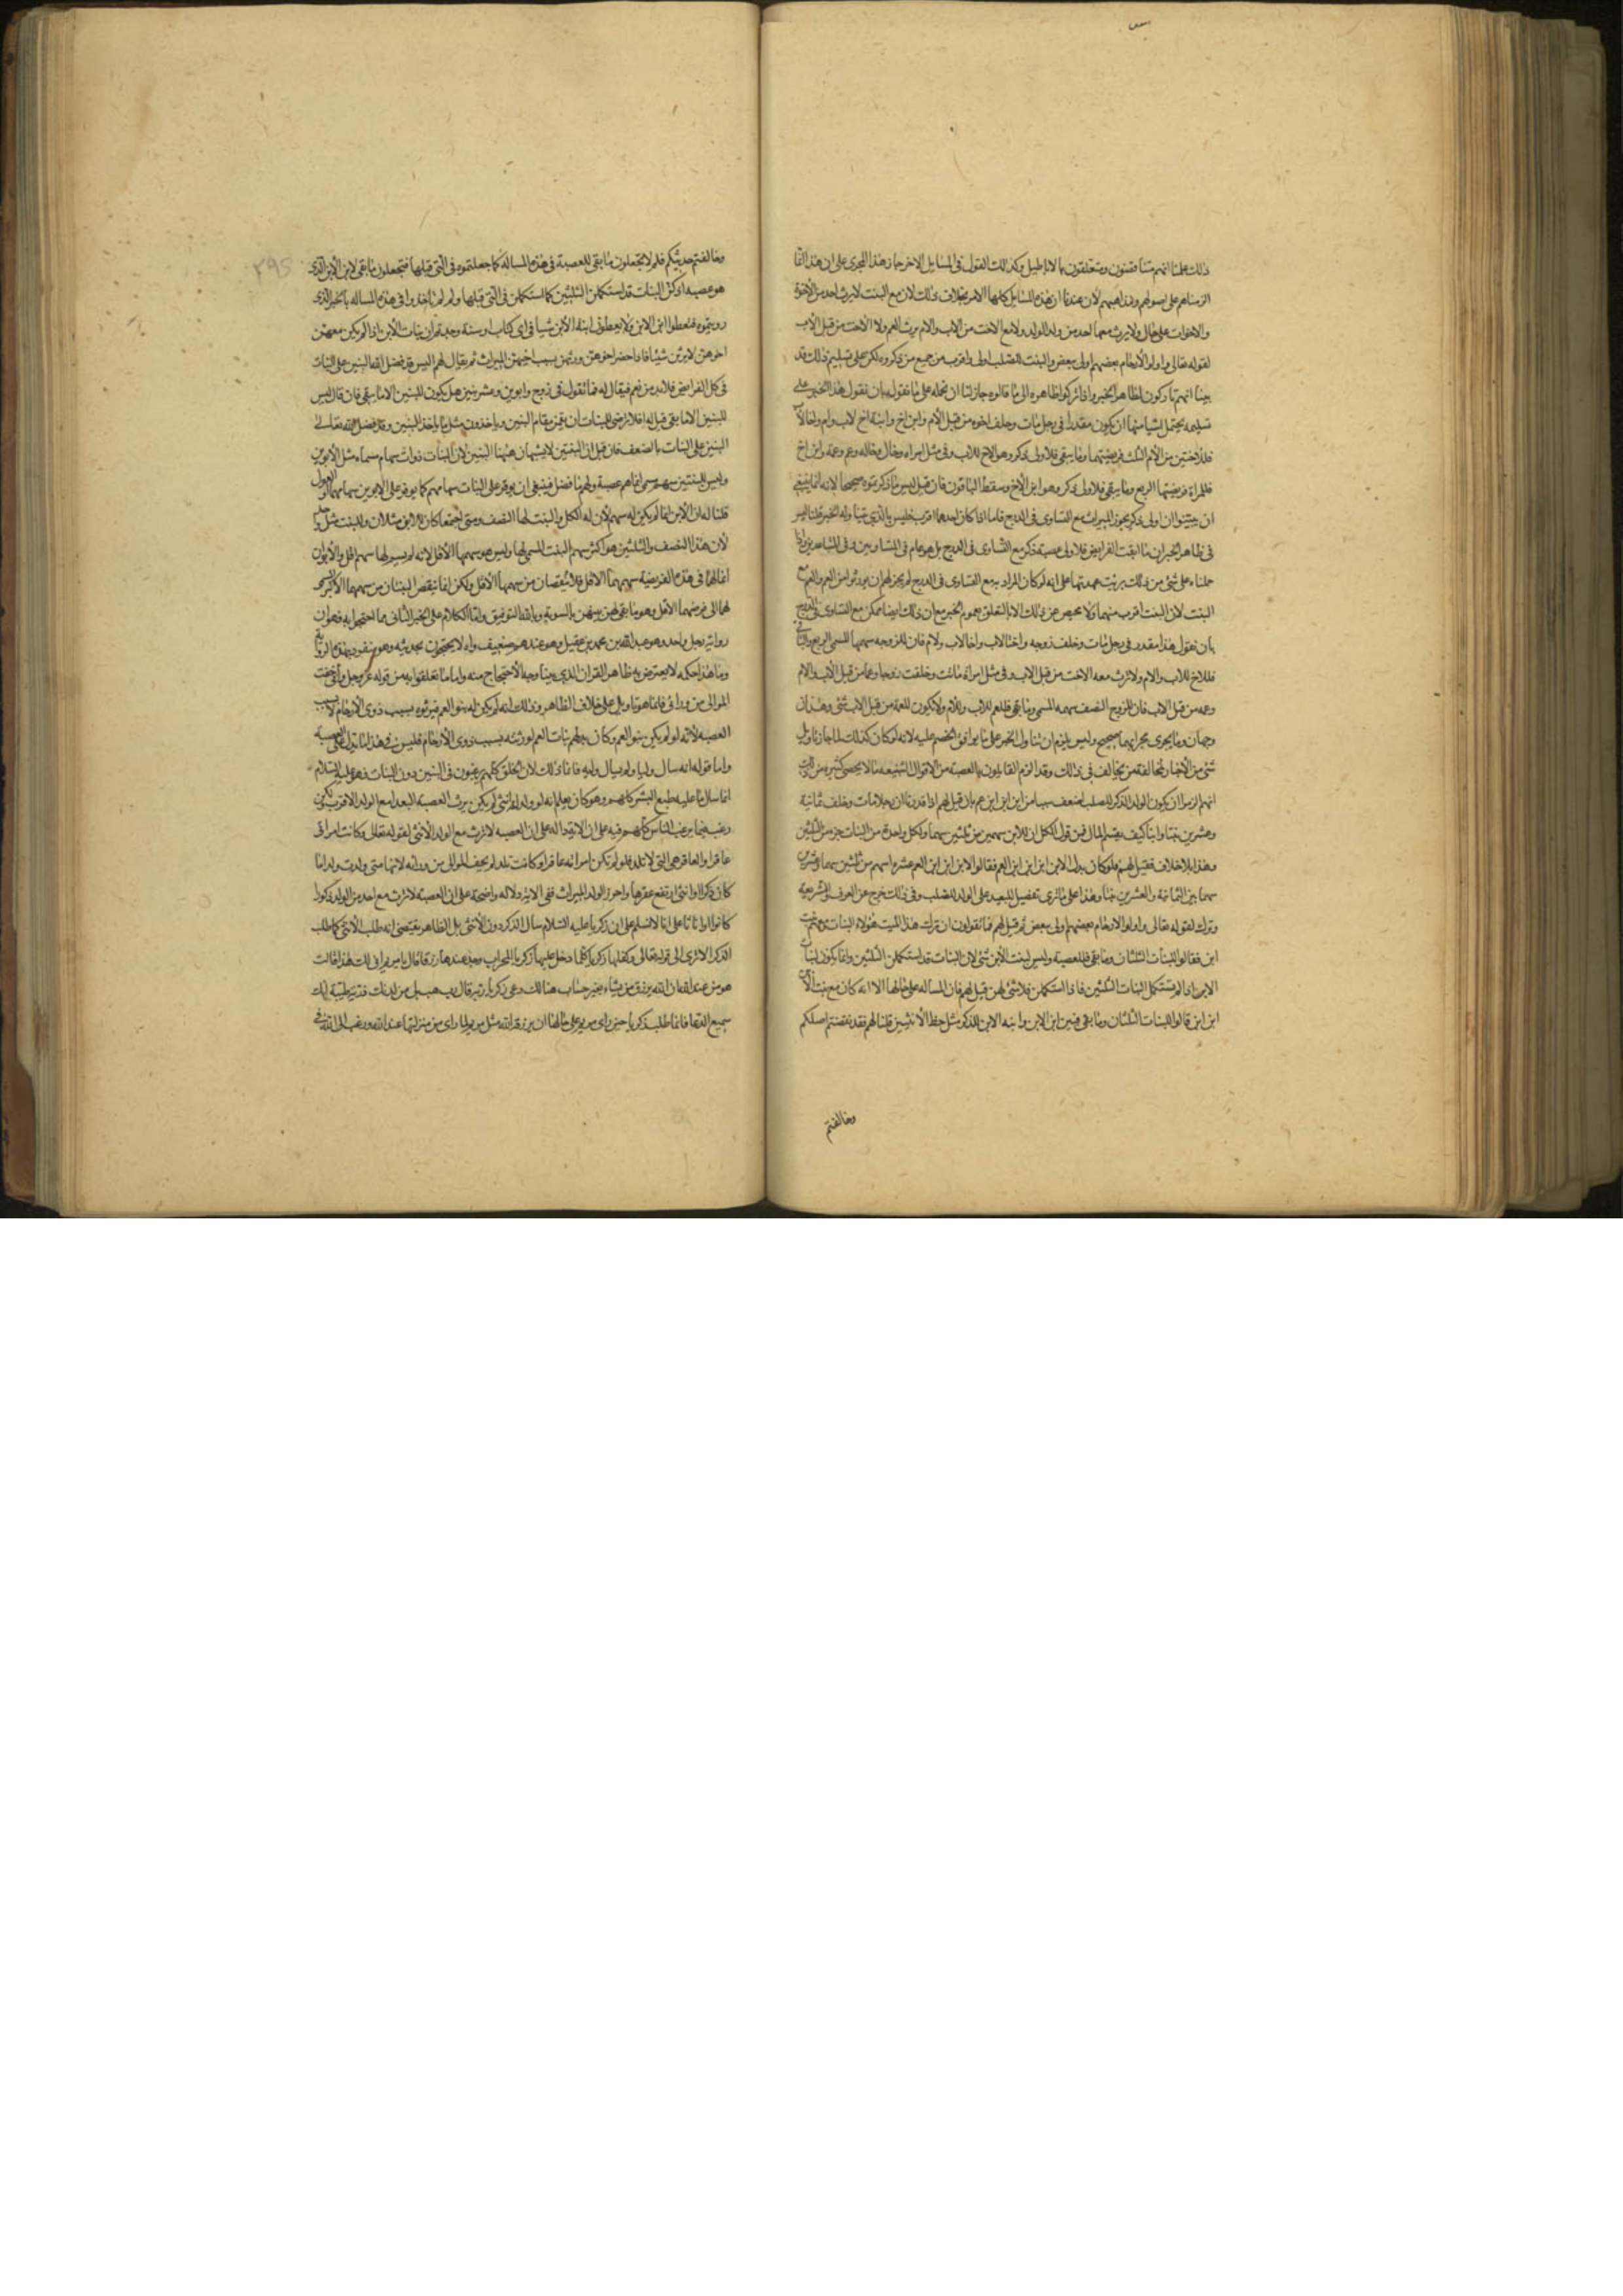 ذلك علمنا انهم متناقضون ومتعلقون بالاباطيل وكذلك القول في المسايل الاخر جاز هذا المجرى على ان هذا انما
الزمناهم على اصولهم ومذاهبهم لان عندنا ان هذه المسايل كلها الامر بخلاف ذلك لان مع البنت لا يرث احد من الأخوة
والاخوات على حال ولا يرث معها احد من ولد الولد ولا مع الاخت من الاب والام يرث العم ولا الاخت من قبل الأب
لقوله تعالى واولو الأرحام بعضهم اولى ببعض والبنت للصلب اولى واقرب من جميع من ذكروه لكن على تسليم ذلك قد
بينا انهم تاركون لظاهر الخبر واذا تركوا ظاهره الى ما قالوه جاز لنا ان نحمله على ما نقوله بان نقول هذا الخبر على
تسليمه يحتمل اشيا منها ان يكون مقدرا في رجل مات وخلف اخوه من قبل الأم وابن اخ وابنة اخ لاب وام واخا لاب
فللاختين من الأم الثلث فريضتهما وما يبقى فلاولى ذكر وهو الاخ للاب وفي مثل امراه وخال وخاله وعم وعمة وابن اخ
فللمراة فريضتها الربع وما يبقى فلاولى ذكر وهو ابن الأخ وسقط الباقون فان قيل ليس ما ذكرتموه صحيحا لانه انما ينبغي
ان يبينوا ان اولى ذكر يحوز الميراث مع التساوى في الدرج فاما اذا كان احدهما اقرب فليس بالذي تناوله الخبر قلنا ليس
في ظاهر الخبر ان ما ابقت الفرايض فلاولى عصبة ذكر مع التساوى في الدرج بل هو عام في المتساويين وفي المتباعدين واذا
حملناه على شئ من ذلك برئت عهدتنا على انه لو كان المراد به مع التساوى في الدرج لم يجز لهم ان يورثوا ابن العم والعم مع
البنت لان البنت اقرب منهما ولا محيص عن ذلك الا بالتعلق بعموم الخبر مع ان ذلك ايضا ممكن مع التساوى في الدرج
بان نقول هذا مقدر في رجل مات وخلف زوجه واختا لاب واخا لاب ولام فان للزوجه سهمها المسمى الربع والباقي
فللاخ للاب والام ولا ترث معه الاخت من قبل الاب وفي مثل امراة ماتت وخلفت زوجا وعما من قبل الأب والام
وعمه من قبل الاب فان للزوج النصف سهمه المسمى وما بقي فللعم للاب وللأم ولا يكون للعمة من قبل الاب شئ وهذان
وجهان وما يجرى مجراهما صحيح وليس يلزم ان نتناول الخبر على ما يوافق الخصم عليه لانه لو كان كذلك لما جاز تاويل
شئ من الأخبار لمخالفة من يخالف في ذلك وقد الزم القايلون بالعصبة من الاقوال الشنيعه ما لا يحصى كثيره من ذلك
انهم الزموا ان يكون الولد الذكر للصلب اضعف سببا من ابن ابن ابن عم بان قيل لهم اذا قدرنا ان رجلا مات وخلف ثمانية
وعشرين بنتا وابنا كيف يقسم المال فمن قول الكل ان للابن سهمين من ثلثين سهما ولكل واحدة من البنات جزو من الثلثين
وهذا بلا خلاف فقيل لهم فلو كان بدل الابن ابن ابن ابن العم فقالوا لابن ابن ابن العم عشره اسهم من ثلثين سهما وعشرين
سهما بين الثمانية والعشرين بنتا وهذا على ما ترى تفضيل للبعيد على الولد للصلب وفي ذلك خروج عن العرف والشريعة
وترك لقوله تعالى واولوا الارحام بعضهم اولى ببعض ثم قيل لهم فما تقولون ان ترك هذا الميت هؤلاء البنات ومعهن بنت
ابن فقالوا للبنات الثلثان وما بقي فللعصبة وليس لبنت الأبن شئ لان البنات قد استكملن الثلثين وانما يكون لبنات
الابن اذا لم تستكمل البنات الثلثين فاذا استكملن فلا شئ لهن قيل لهم فان المساله على حالها الا انه كان مع بنت الأبن
ابن ابن قالوا للبنات الثلثان وما بقي فبين ابن الابن وابنه الابن للذكر مثل حظ الأنثيين قلنا لهم فقد نقضتم اصلكم
وخالفتم
وخالفتم حديثكم فلم لا تجعلون ما بقي للعصبة في هذه المسالة كما جعلتموه في التي قبلها فتجعلون ما بقي لابن الأبن الذي
هو عصبه او كن البنات قد استكملن الثلثين كما استكملن في التي قبلها ولم لم تاخذوا في هذه المساله بالخبر الذي
رويتموه فتعطوا ابن الابن ولا يعطون ابنة الأبن شيا في اى كتاب او سنة وجدتم ان بنات الأبن اذا لم يكن معهن
اخوهن لا يرثن شيئا فاذا حضر اخوهن ورثهن بسبب اخيهن الميراث ثم يقال لهم اليس قد فضل الله البنين على البنات
في كل الفرايض فلا بد من نعم فيقال له فما تقول في زوج وابوين وعشر بنين هل يكون للبنين الا ما يبقى فان قال ليس
للبنين الا ما بقي قيل له افلا ترضى للبنات ان يقمن مقام البنين وياخذون مثل ما ياخذ البنين وقد فضل الله تعالى
البنين على البنات بالضعف فان قيل ان البنتين لا يشبهان هيهنا البنين لان البنات ذوات سهام مسماه مثل الأبوين
وليس للبنتين سهم مسمى انما هم عصبة ولهم ما فضل فينبغي ان يوفر على البنات سهامهم كما يوفر على الابوين سهامهما او العول
قلنا له ان الأبن انما لم يكن له سهم لأن له الكل وللبنت لها النصف ومتى اجتمعا كان للابن مثلان وللبنت مثل واحد
لأن هذا النصف والثلثين هو اكثر سهم البنت المسمى لها وليس هو سهمها الأقل لانه لم يسم لها سهم اقل والأبوان
انما لهما في هذه الفريضة سهمهما الاقل فلا ينقصان من سهمهما الأقل ولكن انما ينقص البنتان من سهمهما الأكثر المسمى
لهما الى فرضهما الأقل وهو ما بقي لهن بينهن بالسوية وبالله التوفيق واما الكلام على الخبر الثاني مما احتجوا به فهو ان
رواية رجل واحد وهو عبد الله بن محمد بن عقيل وهو عندهم ضعيف واه لا يحتجون بحديثه وهو منفرد بهذه الرواية
وما هذا حكمه لا يعترض به ظاهر القران الذي بينا وجه الأحتجاج منه واما ما تعلقوا به من قوله عز وجل واني خفت
الموالى من ورائى فانما هو تاويل على خلاف الظاهر وذلك انه لم يكن له بنو العم فيرثوه بسبب ذوى الأرحام لا بسبب
العصبه لأنه لو لم يكن بنو العم وكان بدلهم بنات العم لورثنه بسبب ذوى الأرحام فليس في هذا تاويل على العصبة
واما قوله انه سال وليا ولم يسال وليه فانما ذلك لان الخلق كلهم يرغبون في البنين دون البنات فهو عليه السلام
انما سال ما عليه طبع البشر كلهم وهو كان يعلم انه لو ولد له انثى لم يكن يرث العصبة البعدا مع الولد الاقرب لكن
رغب فيما يرغب الناس كلهم فيه على ان الاية دالة على ان العصبه لا ترث مع الولد الأنثى لقوله تعالى وكانت امراتى
عاقرا والعاقر هي التي لا تلد فلو لم تكن امراته عاقرا وكانت تلد لم يخف الموالى من ورائه لانها متى ولدت ولدا ما
كان ذكرا او انثى ارتفع عقرها واحرز الولد الميراث ففي الاية دلالة واضحة على ان العصبة لا ترث مع احد من الولد ذكورا
كانوا او اناثا على انا لا نسلم على ان زكريا عليه السلام سال الذكر دون الأنثى بل الظاهر يقتضى انه طلب الأنثى كما طلب
الذكر الا ترى الى قوله تعالى وكفلها زكريا كلما دخل عليها زكريا المحراب وجد عندها رزقا قال يا مريم انى لك هذا قالت
هو من عند الله ان الله يرزق من يشاء بغير حساب هنالك دعى زكريا ربه قال رب هب لى من لدنك ذرية طيبة انك
سميع الدعا فانما طلب زكريا حين راى مريم على حالها ان يرزقه الله مثل مريم لما راى من منزلتها عند الله ورغب الى الله في
٢٩٥